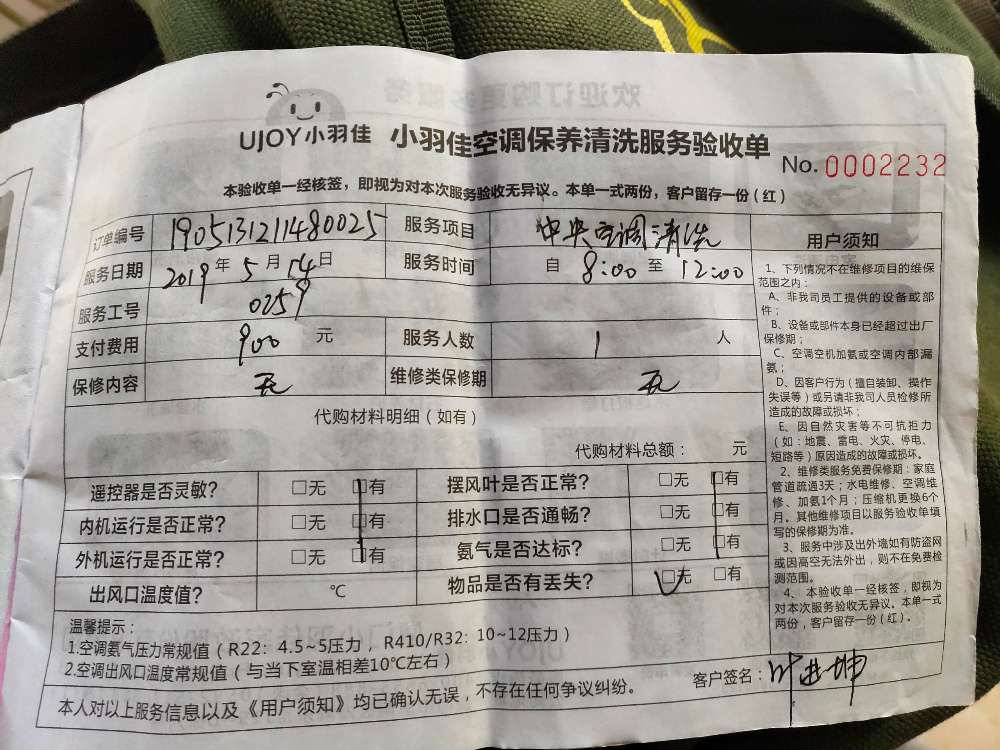 UJOY小羽佳 小羽佳空调保养清洗服务验收单
No. 0002232
本验收单一经核签，即视为对本次服务验收无异议。本单一式两份，客户留存一份(红)
订单编号 1905131211480025 服务项目 中央空调清洗
服务日期 2019年5月14日 服务时间 自 8:00 至 12:00
服务工号 0259
支付费用 900 元 服务人数 1 人
保修内容 无 维修类保修期 无
代购材料明细（如有）
代购材料总额： 元
遥控器是否灵敏？ □无 □有 摆风叶是否正常？ □无 □有
内机运行是否正常？ □无 □有 排水口是否通畅？ □无 □有
外机运行是否正常？ □无 □有 氨气是否达标？ □无 □有
出风口温度值？ ℃ 物品是否有丢失？ □无 □有
温馨提示：
1.空调氨气压力常规值（R22：4.5~5压力，R410/R32：10~12压力）
2.空调出风口温度常规值（与当下室温相差10℃左右）
客户签名：叶进坤
本人对以上服务信息以及《用户须知》均已确认无误，不存在任何争议纠纷。
用户须知
1、下列情况不在维修项目的维保
范围之内：
A、非我司员工提供的设备或部
件；
B、设备或部件本身已经超过出厂
保修期；
C、空调空机加氨或空调内部漏
氨；
D、因客户行为（擅自装卸、操作
失误等）或另请非我司人员检修所
造成的故障或损坏；
E、因自然灾害等不可抗拒力
（如：地震、雷电、火灾、停电、
短路等）原因造成的故障或损坏。
2、维修类服务免费保修期：家庭
管道疏通3天；水电维修、空调维
修、加氨1个月；压缩机更换6个
月。其他维修项目以服务验收单填
写的保修期为准。
3、服务中涉及出外墙如有防盗网
或因高空无法外出，则不在免费检
测范围。
4、本验收单一经核签，即视为
对本次服务验收无异议。本单一式
两份，客户留存一份（红）。